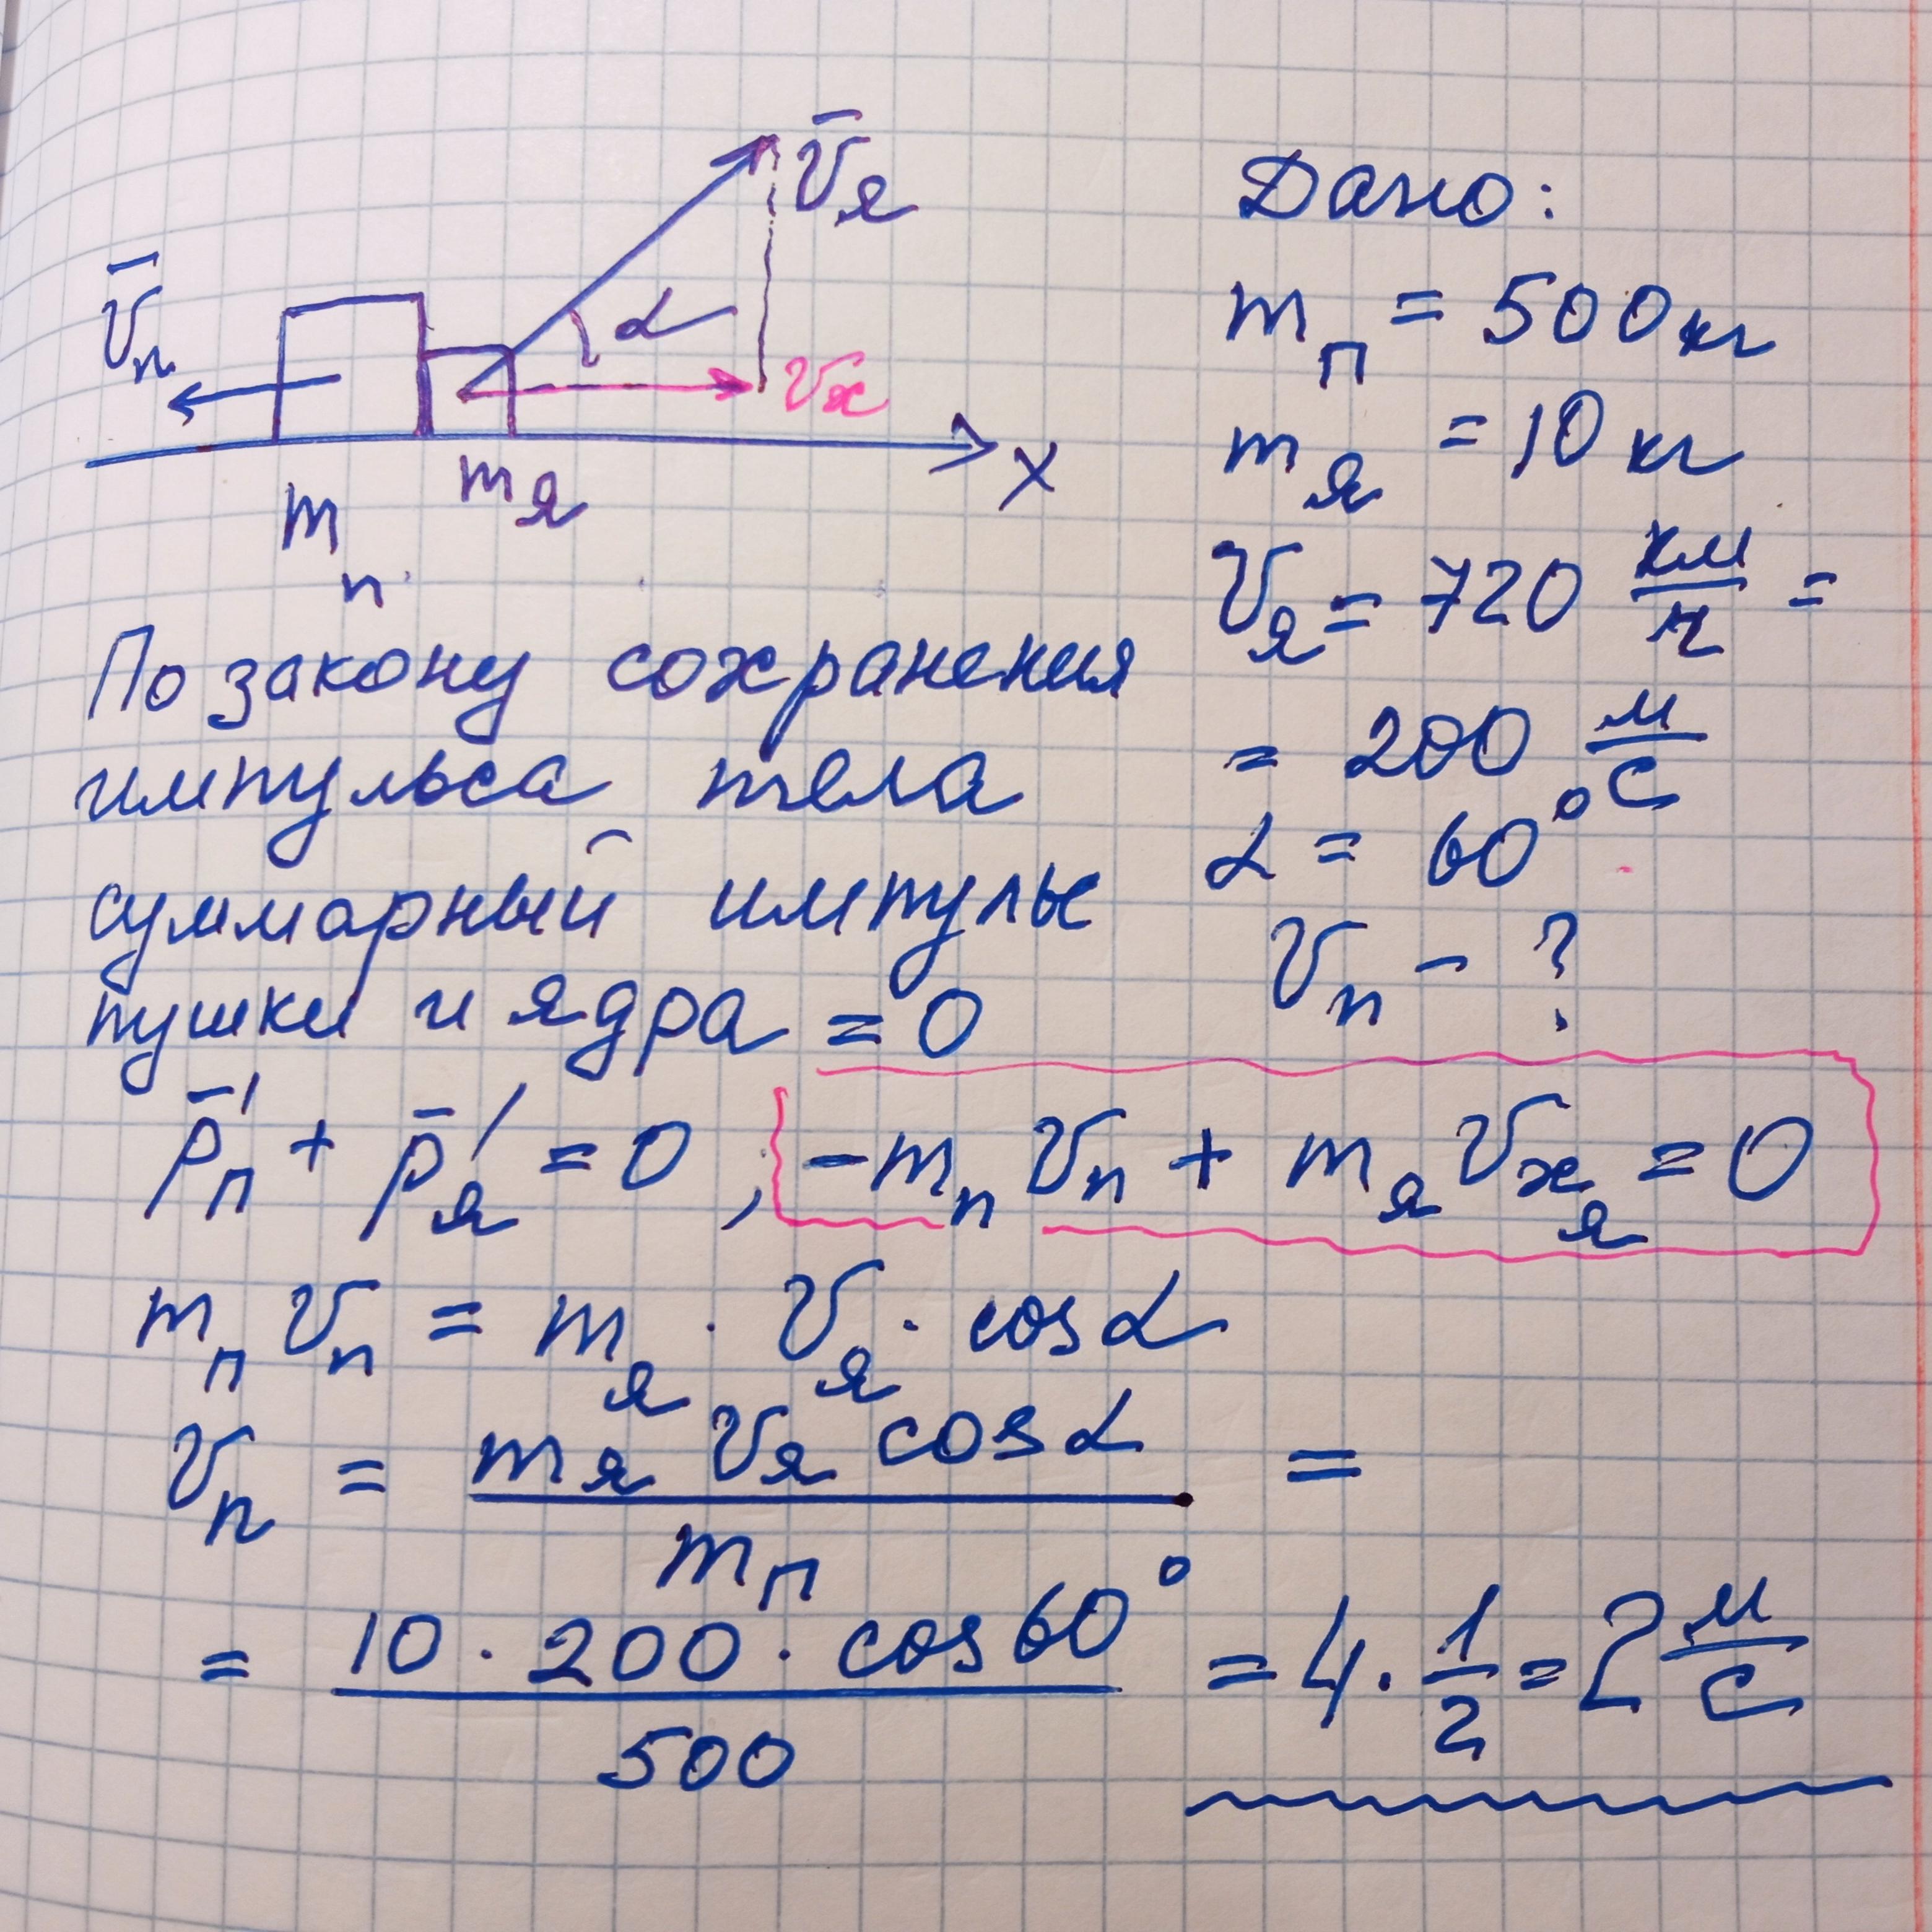 v̄я
v̄п
α
vx
x
mп
mя
Дано:
mп = 500 кг
mя = 10 кг
vя = 720 км/ч =
= 200 м/с
α = 60°
vп - ?
По закону сохранения
импульса тела
суммарный импульс
пушки и ядра = 0
p̄п′ + p̄я′ = 0 ; -mп vп + mя vxя = 0
mп vп = mя · vя · cosα
vп = mя vя cosα / mп =
= 10 · 200 · cos60° / 500 = 4 · 1/2 = 2 м/с